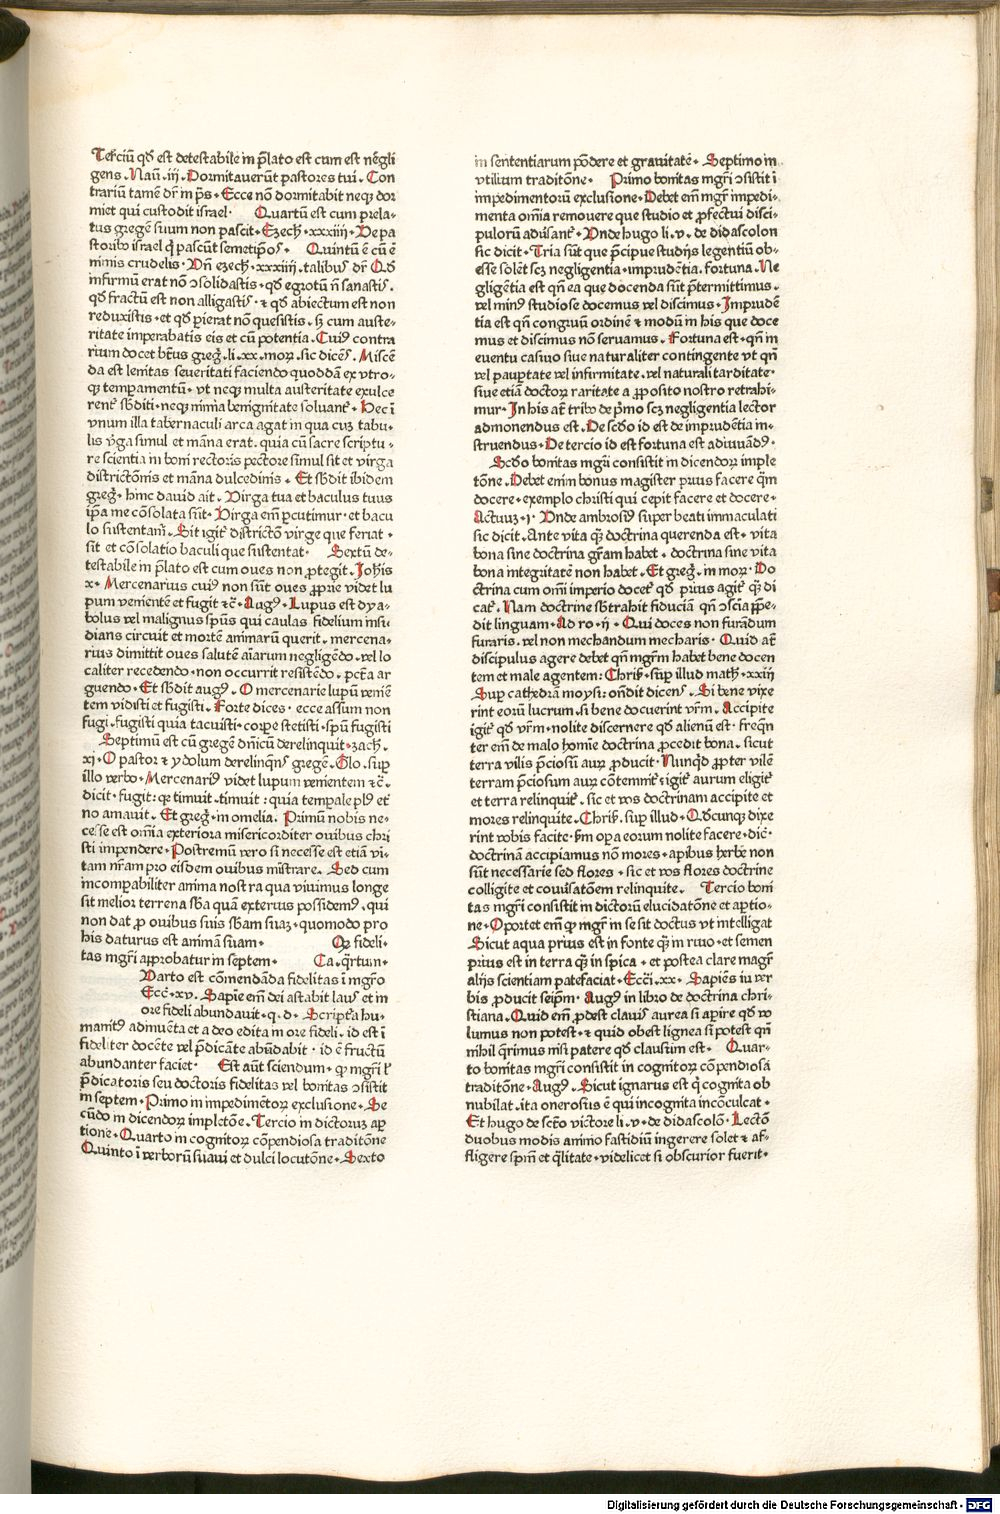 Terciū qd̄ est detestabile in p̄lato est cum est negli
gens. Naū. iij. Dormitauerūt pastores tui. Con
trariū tamē dr̄ in ps̄. Ecce nō dormitabit neqꝫ dor
miet qui custodit israel. Quartū est cum prela-
tus gregē suum non pascit. Ezech. xxxiiij. Ve pa
storibꝰ israel q̄ pascūt semetip̄os. Quintū ē cū ē
nimis crudelis. Vn̄ ezech. xxxiiij. talibus dr̄ Qd̄
infirmū erat nō ↄsolidastis. qd̄ egrotū n̄ sanastis.
qd̄ fractū est non alligastis. ⁊ qd̄ abiectum est non
reduxistis. et qd̄ ꝑierat nō quesistis. sꝫ cum auste-
ritate imperabatis eis et cū potentia. Cuiꝰ contra
rium docet btūs greḡ. li. xx. moꝝ. sic dicens. Miscē
da est lenitas seueritati faciendo quoddā ex vtro-
qꝫ tempamentū. vt neqꝫ multa austeritate exulce
rent sbditi. neqꝫ nimia benignitate soluant. Hec ī
vnum illa tabernaculi arca agat in qua cuꝫ tabu-
lis v̄ga simul et māna erat. quia cū sacre scriptu-
re scientia in boni rectoris pectore simul sit et virga
districtōnis et māna dulcedinis. Et sbdit ibidem
greḡ. hinc dauid ait. Virga tua et baculus tuus
ip̄a me cōsolata sūt. Virga em̄ ꝑcutimur. et bacu
lo sustentam̄. Sit igit districtō virge que feriat.
sit et cōsolatio baculi que sustentat. Sextū de-
testabile in p̄lato est cum oues non ꝓtegit. Johis
x. Mercenarius cuiꝰ non sūt oues ꝓprie videt lu
pum venientē et fugit ⁊c̄. Augꝰ. Lupus est dya-
bolus vel malignus sp̄us qui caulas fidelium insi-
dians circuit et mortē animarū querit. mercena-
rius dimittit oues salutē aīarum negligēdo. vel lo
caliter recedendo. non occurrit resistēdo. pctā ar
guendo. Et sbdit augꝰ. O mercenarie lupū veniē
tem vidisti et fugisti. Forte dices. ecce assum non
fugi. fugisti quia tacuisti. corpe stetisti. sp̄u fugisti
Septimū est cū gregē dn̄icū derelinquit. zach.
xj. O pastor ⁊ ydolum derelinq̄ns gregē. Glo. suꝑ
illo verbo. Mercenariꝰ videt lupum venientem ⁊c̄.
dicit. fugit: qr timuit. timuit: quia tempale plꝰ et
no amauit. Et greḡ. in omelia. Primū nobis ne-
cesse est om̄ia exteriora misericorditer ouibus chri
sti impendere. Postremū vero si necesse est etiā vi-
tam nr̄am pro eisdem ouibus mistrare. Sed cum
incompabiliter anima nostra qua viuimus longe
sit melior terrena sba quā exterius possidemꝰ. qui
non dat ꝓ ouibus suis sbam suaꝫ. quomodo pro
his daturus est animā suam. Qꝝ fideli-
tas mgri approbatur in septem. Ca. q̄rtum.
Varto est cōmendāda fidelitas ī mgrō
Eccī. xv. Sapīe em̄ dei astabit laus et in
ore fideli abundauit. q. d. Scriptā hu-
manitꝰ adinuēta et a deo edita in ore fideli. id est ī
fideliter docēte vel p̄dicāte abūdabit. id ē fructū
abundanter faciet. Est aūt sciendum. ꝙ mgri l
p̄dicatoris seu doctoris fidelitas vel bonitas ↄsistit
in septem. Primo in impedimētoꝝ exclusione. Se
cūdo in dicendoꝝ impletōe. Tercio in dictoruꝫ aꝑ
tione. Quarto in cognitoꝝ cōpendiosa traditōne
Quinto ī verborū suaui et dulci locutōne. Sexto
in sententiarum pōdere et grauitatē. Septimo in
vtilium traditōne. Primo bonitas mgri ↄsistit ī
impedimentorū exclusione. Debet em̄ mgr̄ impedi-
menta om̄ia remouere que studio et ꝓfectui disci-
pulorū aduersant. Vnde hugo li. v. de didascolon
sic dicit. Tria sūt que p̄cipue studijs legentiū ob-
esse solēt scꝫ negligentia. imprudētia. fortuna. Ne
gligētia est qn̄ ea que docenda sūt p̄termittimus.
vel minꝰ studiose docemus vel discimus. Imprudē
tia est qn̄ congruū ordinē ⁊ modū in his que doce
mus et discimus nō seruamus. Fortuna est. qn̄ in
euentu casuo siue naturaliter contingente vt qn̄
vel paupertate vel infirmitate. vel naturali tarditate.
siue etiā doctoꝝ raritate a ꝓposito nostro retrahi-
mur. In his at tribꝰ de p̄mo scꝫ negligentia lector
admonendus est. De scdo id est de imprudētia in-
struendus. De tercio id est fortuna est adiuuādꝰ.
Scdo bonitas mgri consistit in dicendoꝝ imple
tōne. Debet enim bonus magister prius facere q̄m
docere. exemplo christi qui cepit facere et docere.
Actuuꝫ. i. Vnde ambrosiꝰ super beati immaculati
sic dicit. Ante vita qꝫ doctrina querenda est. vita
bona sine doctrina gr̄am habet. doctrina sine vita
bona integritatē non habet. Et greḡ. in moꝝ. Do
ctrina cum om̄i imperio docet qd̄ prius agit qꝫ di
cat. Nam doctrine sbtrahit fiduciā qn̄ ↄscia īpe-
dit linguam. Ad ro. ij. Qui doces non furādum
furaris. vel non mechandum mecharis. Quid at
discipulus agere debet qn̄ mgrm habet bene docen
tem et male agentem: Chris. suꝑ illud math. xxiij
Suꝑ cathedrā moysi: ondit dicens. Si bene vixe
rint eorū lucrum. si bene docuerint vrm̄. Accipite
igit qd̄ vrm̄. nolite discernere qd̄ alienū est. freqn̄
ter em̄ de malo homīe doctrina ꝓcedit bona. sicut
terra vilis p̄ciosū auꝝ ꝓducit. Nunqd̄ ꝓpter vilē
terram p̄ciosum auꝝ cōtemnit: igit aurum eligit
et terra relinquit. sic et vos doctrinam accipite et
mores relinquite. Chris. suꝑ illud. Qd̄cunqꝫ dixe
rint vobis facite. sm opera eorum nolite facere. dic̄.
doctrinā accipiamus nō mores. apibus herbe non
sūt necessarie sed flores. sic et vos flores doctrine
colligite et cōuersatōem relinquite. Tercio boni
tas mgri consistit in dictorū elucidatōne et aꝑtio-
ne. Oportet em̄ ꝙ mgr̄ in se sit doctus vt intelligat
Sicut aqua prius est in fonte qꝫ in riuo. et semen
prius est in terra qꝫ in spica. et postea clare magr̄
alijs scientiam patefaciat. Eccī. xx. Sapiēs in ver
bis ꝓducit seip̄m. Augꝰ in libro de doctrina chri-
stiana. Quid em̄ ꝓdest clauis aurea si aꝑire qd̄ vo
lumus non potest. ⁊ quid obest lignea si potest qn̄
nihil q̄rimus nisi patere qd̄ clausum est. Quar-
to bonitas mgri consistit in cognitoꝝ cōpendiosa
traditōne. Augꝰ. Sicut ignarus est q̄ cognita ob
nubilat. ita onerosus ē qui incognita incōculcat.
Et hugo de scto victore li. v. de didascolō. Lectō
duobus modis animo fastidiū ingerere solet ⁊ af-
fligere sp̄m et q̄litate. videlicet si obscurior fuerit.
Digitalisierung gefördert durch die Deutsche Forschungsgemeinschaft - DFG